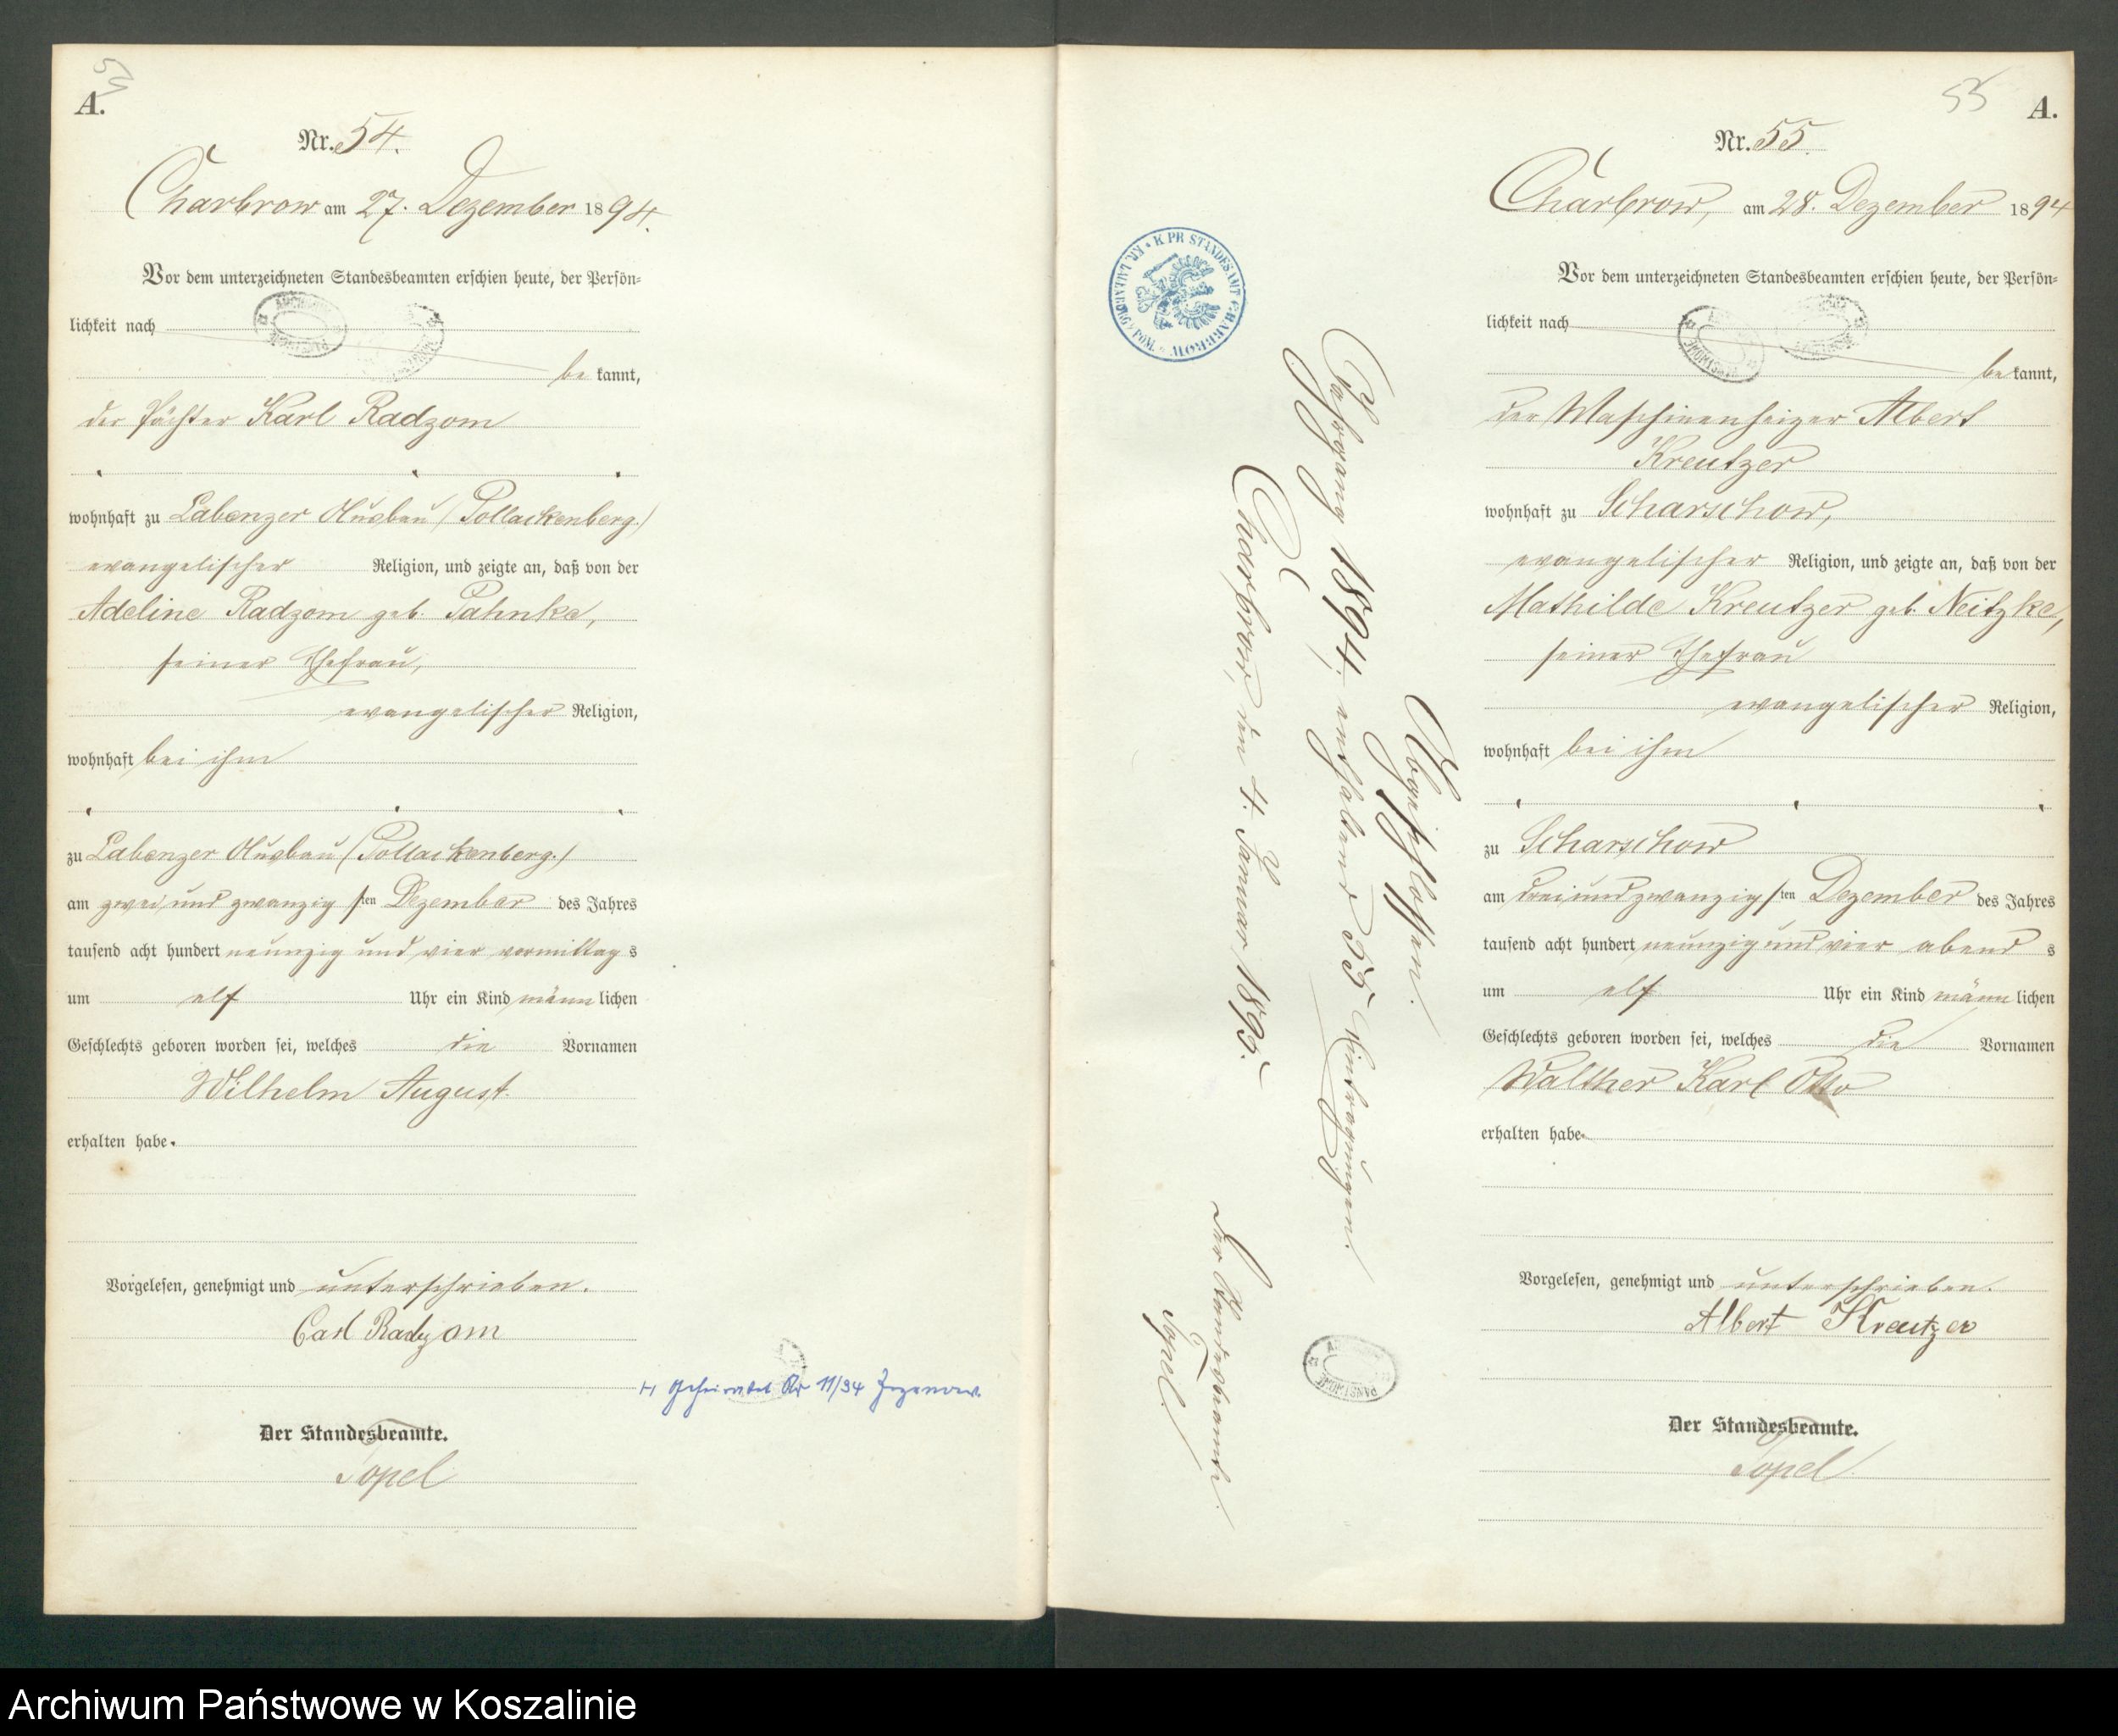 54
A.
Nr. 54.
Charbrow am 27. Dezember 1894.
Vor dem unterzeichneten Standesbeamten erschien heute, der Persön=
lichkeit nach
be kannt,
der Pächter Karl Radzom
wohnhaft zu Labenzer Ausbau (Pollackenberg.)
evangelischer Religion, und zeigte an, daß von der
Adeline Radzom geb. Pahnke,
seiner Ehefrau,
evangelischer Religion,
wohnhaft bei ihm
zu Labenzer Ausbau (Pollackenberg.)
am zwei und zwanzig sten Dezember des Jahres
tausend acht hundert neunzig und vier vormittag s
um elf Uhr ein Kind männ lichen
Geschlechts geboren worden sei, welches die Vornamen
Wilhelm August.
erhalten habe.
Vorgelesen, genehmigt und unterschrieben.
Carl Radzom
H Geheiratet Nr 11/94 Jezenow.
Der Standesbeamte.
Topel
K. PR. STANDESAMT CHARBROW KR. LAUENBURG POM.
Abgeschlossen.
Jahrgang 1894, enthaltend 55 Eintragungen.
Charbrow, den 4. Januar 1895.
Der Standesbeamte.
Topel.
55
A.
Nr. 55.
Charbrow, am 28. Dezember 1894
Vor dem unterzeichneten Standesbeamten erschien heute, der Persön=
lichkeit nach
be kannt,
der Maschinenheizer Albert
Kreutzer
wohnhaft zu Scharschow,
evangelischer Religion, und zeigte an, daß von der
Mathilde Kreutzer geb. Neitzke,
seiner Ehefrau
evangelischer Religion,
wohnhaft bei ihm
zu Scharschow
am drei und zwanzig sten Dezember des Jahres
tausend acht hundert neunzig und vier abend s
um elf Uhr ein Kind männ lichen
Geschlechts geboren worden sei, welches die Vornamen
Walther Karl Otto
erhalten habe.
Vorgelesen, genehmigt und unterschrieben.
Albert Kreutzer
Der Standesbeamte.
Topel.
Archiwum Państwowe w Koszalinie